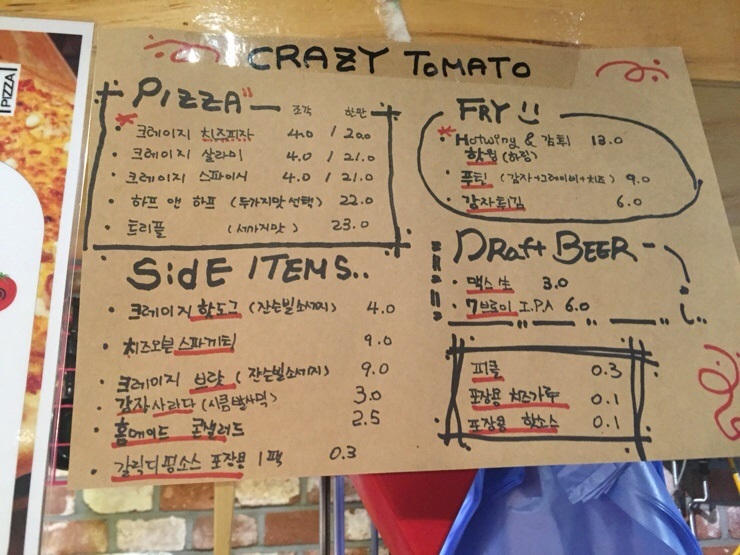 PIZZA
CRAZY TOMATO
PIZZA 조각 한판
크레이지 치즈피자 4.0 / 20.0
크레이지 살라미 4.0 / 21.0
크레이지 스파이시 4.0 / 21.0
하프 앤 하프 (두가지맛 선택) 22.0
트리플 (세가지맛) 23.0
SidE ITEMS..
크레이지 핫도그 (잔슨빌소세지) 4.0
치즈오븐스파게티 9.0
크레이지 브랏 (잔슨빌소세지) 9.0
감자사라다 3.0
홈메이드 콘샐러드 2.5
갈릭디핑소스 포장용 1팩 0.3
FRY
Hotwing & 감튀 13.0
핫윙 (하림)
푸틴 (감자+그레이비+치즈) 9.0
감자튀김 6.0
DRaft BEER
맥스生 3.0
7브로이 I.P.A 6.0
피클 0.3
포장용 치즈가루 0.1
포장용 핫소스 0.1